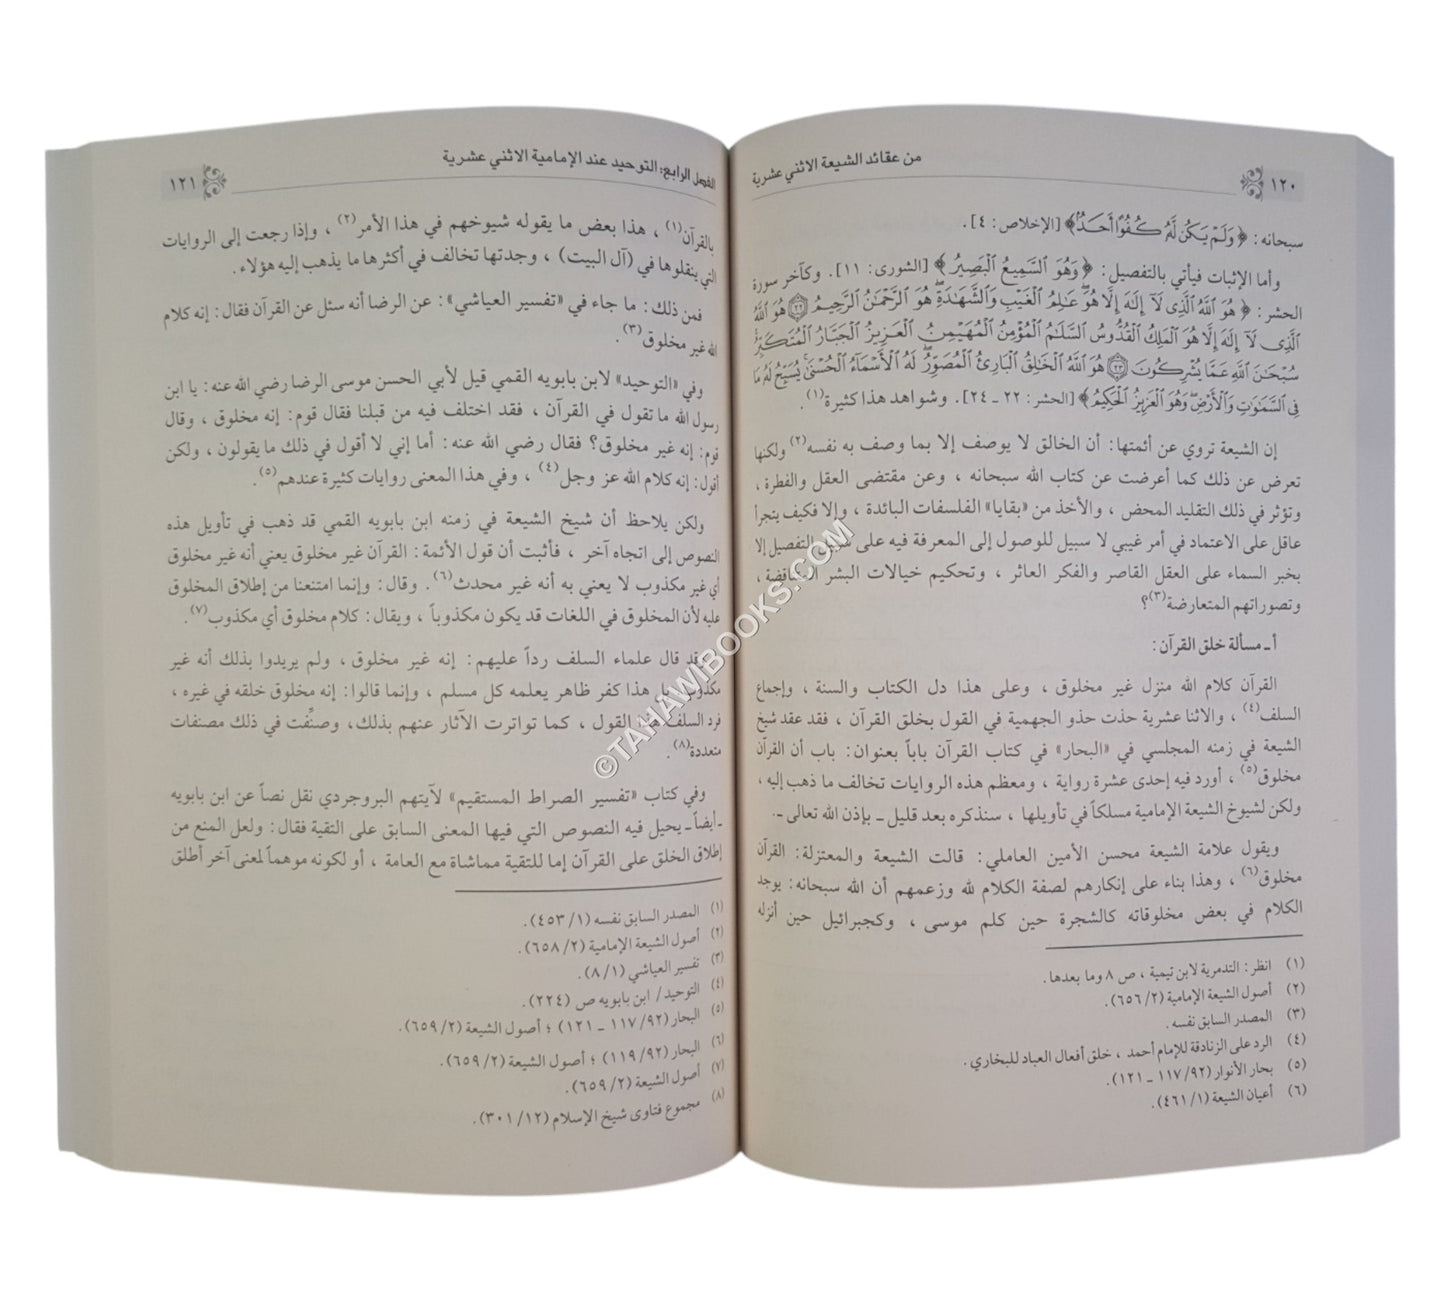 ١٢٠
من عقائد الشيعة الاثني عشرية
سبحانه: ﴿وَلَمْ يَكُن لَّهُ كُفُوًا أَحَدٌ﴾ [الإخلاص: ٤].
وأما الإثبات فيأتي بالتفصيل: ﴿وَهُوَ السَّمِيعُ الْبَصِيرُ﴾ [الشورى: ١١]. وكآخر سورة
الحشر: ﴿هُوَ اللَّهُ الَّذِي لَا إِلَٰهَ إِلَّا هُوَ عَالِمُ الْغَيْبِ وَالشَّهَادَةِ هُوَ الرَّحْمَٰنُ الرَّحِيمُ ۝٢٢ هُوَ اللَّهُ
الَّذِي لَا إِلَٰهَ إِلَّا هُوَ الْمَلِكُ الْقُدُّوسُ السَّلَامُ الْمُؤْمِنُ الْمُهَيْمِنُ الْعَزِيزُ الْجَبَّارُ الْمُتَكَبِّرُ
سُبْحَانَ اللَّهِ عَمَّا يُشْرِكُونَ ۝٢٣ هُوَ اللَّهُ الْخَالِقُ الْبَارِئُ الْمُصَوِّرُ لَهُ الْأَسْمَاءُ الْحُسْنَىٰ يُسَبِّحُ لَهُ مَا
فِي السَّمَاوَاتِ وَالْأَرْضِ وَهُوَ الْعَزِيزُ الْحَكِيمُ﴾ [الحشر: ٢٢ ـ ٢٤]. وشواهد هذا كثيرة(١).
إن الشيعة تروي عن أئمتها: أن الخالق لا يوصف إلا بما وصف به نفسه(٢) ولكنها
تعرض عن ذلك كما أعرضت عن كتاب الله سبحانه ، وعن مقتضى العقل والفطرة ،
وتؤثر في ذلك التقليد المحض ، والأخذ من «بقايا» الفلسفات البائدة ، وإلا فكيف يتجرأ
عاقل على الاعتماد في أمر غيبي لا سبيل للوصول إلى المعرفة فيه على سبيل التفصيل إلا
بخبر السماء على العقل القاصر والفكر العاثر ، وتحكيم خيالات البشر المتناقضة ،
وتصوراتهم المتعارضة(٣)؟
أ ـ مسألة خلق القرآن:
القرآن كلام الله منزل غير مخلوق ، وعلى هذا دل الكتاب والسنة ، وإجماع
السلف(٤) ، والاثنا عشرية حذت حذو الجهمية في القول بخلق القرآن ، فقد عقد شيخ
الشيعة في زمنه المجلسي في «البحار» في كتاب القرآن باباً بعنوان: باب أن القرآن
مخلوق(٥) ، أورد فيه إحدى عشرة رواية ، ومعظم هذه الروايات تخالف ما ذهب إليه ،
ولكن لشيوخ الشيعة الإمامية مسلكاً في تأويلها ، سنذكره بعد قليل ـ بإذن الله تعالى ـ.
ويقول علامة الشيعة محسن الأمين العاملي: قالت الشيعة والمعتزلة: القرآن
مخلوق(٦) ، وهذا بناء على إنكارهم لصفة الكلام لله وزعمهم أن الله سبحانه: يوجد
الكلام في بعض مخلوقاته كالشجرة حين كلم موسى ، وكجبرائيل حين أنزله
(١) انظر: التدمرية لابن تيمية ، ص ٨ وما بعدها.
(٢) أصول الشيعة الإمامية (٢/ ٦٥٦).
(٣) المصدر السابق نفسه.
(٤) الرد على الزنادقة للإمام أحمد ، خلق أفعال العباد للبخاري.
(٥) بحار الأنوار (٩٢/ ١١٧ ـ ١٢١).
(٦) أعيان الشيعة (١/ ٤٦١).
الفصل الرابع: التوحيد عند الإمامية الاثني عشرية
١٢١
بالقرآن(١) ، هذا بعض ما يقوله شيوخهم في هذا الأمر(٢) ، وإذا رجعت إلى الروايات
التي ينقلوها في (آل البيت) ، وجدتها تخالف في أكثرها ما يذهب إليه هؤلاء.
فمن ذلك: ما جاء في «تفسير العياشي»: عن الرضا أنه سئل عن القرآن فقال: إنه كلام
الله غير مخلوق(٣).
وفي «التوحيد» لابن بابويه القمي قيل لأبي الحسن موسى الرضا رضي الله عنه: يا ابن
رسول الله ما تقول في القرآن ، فقد اختلف فيه من قبلنا فقال قوم: إنه مخلوق ، وقال
قوم: إنه غير مخلوق؟ فقال رضي الله عنه: أما إني لا أقول في ذلك ما يقولون ، ولكن
أقول: إنه كلام الله عز وجل(٤) ، وفي هذا المعنى روايات كثيرة عندهم(٥).
ولكن يلاحظ أن شيخ الشيعة في زمنه ابن بابويه القمي قد ذهب في تأويل هذه
النصوص إلى اتجاه آخر ، فأثبت أن قول الأئمة: القرآن غير مخلوق يعني أنه غير مخلوق
أي غير مكذوب لا يعني به أنه غير محدث(٦). وقال: وإنما امتنعنا من إطلاق المخلوق
عليه لأن المخلوق في اللغات قد يكون مكذوباً ، ويقال: كلام مخلوق أي مكذوب(٧).
وقد قال علماء السلف رداً عليهم: إنه غير مخلوق ، ولم يريدوا بذلك أنه غير
مكذوب بل هذا كفر ظاهر يعلمه كل مسلم ، وإنما قالوا: إنه مخلوق خلقه في غيره ،
فرد السلف هذا القول ، كما تواترت الآثار عنهم بذلك، وصنِّفت في ذلك مصنفات
متعددة(٨).
وفي كتاب «تفسير الصراط المستقيم» لآيتهم البروجردي نقل نصاً عن ابن بابويه
ـ أيضاً ـ يحيل فيه النصوص التي فيها المعنى السابق على التقية فقال: ولعل المنع من
إطلاق الخلق على القرآن إما للتقية مماشاة مع العامة ، أو لكونه موهماً لمعنى آخر أطلق
(١) المصدر السابق نفسه (١/ ٤٥٣).
(٢) أصول الشيعة الإمامية (٢/ ٦٥٨).
(٣) تفسير العياشي (١/ ٨).
(٤) التوحيد/ ابن بابويه ص (٢٢٤).
(٥) البحار (٩٢/ ١١٧ ـ ١٢١) ؛ أصول الشيعة (٢/ ٦٥٩).
(٦) البحار (٩٢/ ١١٩) ؛ أصول الشيعة (٢/ ٦٥٩).
(٧) أصول الشيعة (٢/ ٦٥٩).
(٨) مجموع فتاوى شيخ الإسلام (١٢/ ٣٠١).
©TAHAWIBOOKS.COM